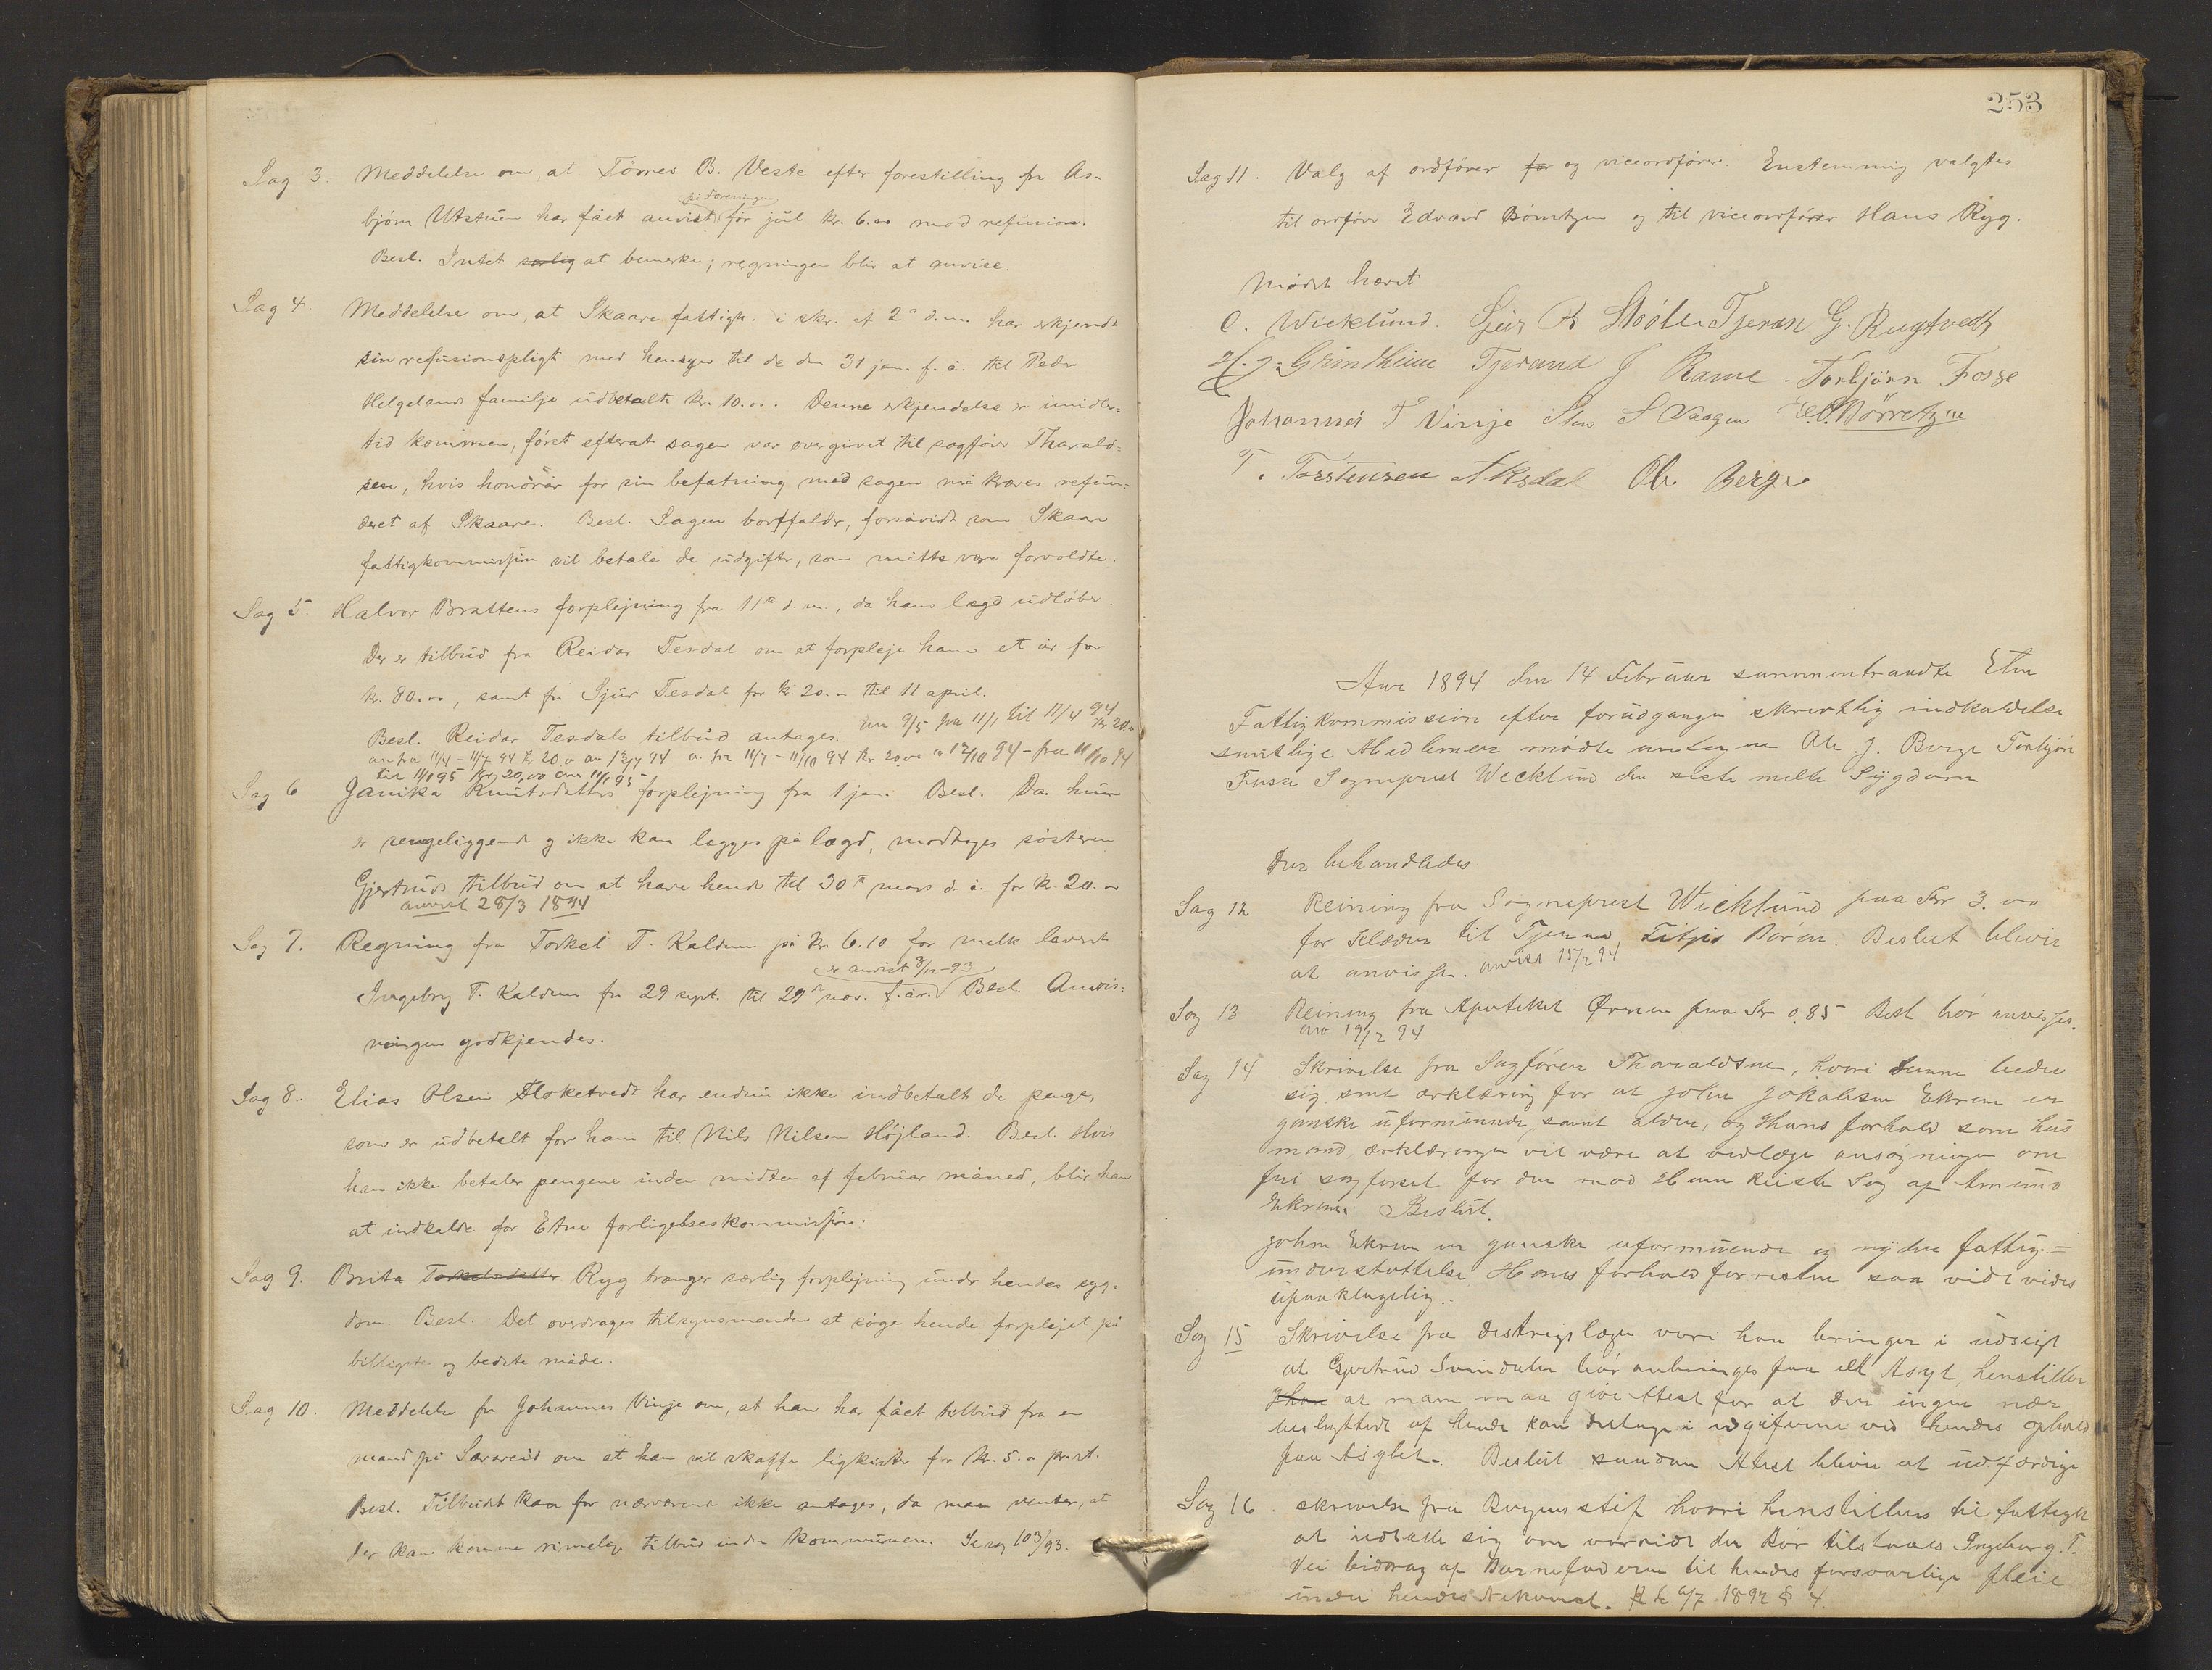 Sag 3. Meddelelse om, at Tørres B. Veste efter forestilling fra As-
på Foreningen
bjørn Utstuen har fået anvist før jul kr. 6.00 mod refusion.
Besl. Intet særlig at bemerke; regningen blir at anvise.
Sag 4. Meddelelse om, at Skaare fattigk. i skr. af 2n d.m. har erkjendt
sin refusionspligt med hensyn til de den 31 jan. f. å. til Peder
Helgelands familje udbetalte kr. 10.00. Denne erkjendelse er imidler-
tid kommen, først efterat sagen var overgivet til sagfører Tharald-
sen, hvis honorar for sin befatning med sagen må kræves refun-
deret af Skaare. Besl. Sagen bortfalder, forsåvidt som Skaare
fattigkommissjon vil betale de udgifter, som måtte være forvoldte.
Sag 5. Halvor Brattens forplejning fra 11te d.m., da hans lægd udløber.
Der er tilbud fra Reidar Tesdal om at forpleje ham et år for
kr. 80.00, samt fra Sjur Tesdal for kr. 20.00 til 11 april.
Besl. Reidar Tesdals tilbud antages. an 9/5 fra 11/1 til 11/4 94 kr 20.00
an fra 11/4 - 11/7 94 kr 20,00 an 12/7 94 a. fra 11/7 - 11/10 94 kr 20,00 a 12/10 94 - fra 11/10 94
til 11/1 95 kr. 20,00 an 11/1 95
Sag 6 Janika Knutsdatters forplejning fra 1 jan. Besl. Da hun
er sengeliggende og ikke kan lægges på lægd, modtages søsteren
Gjertruds tilbud om at have hende til 30te mars d. å. for kr. 20.00
anvist 28/3 1894
Sag 7. Regning fra Torkel T. Kaldum på kr. 6.10 for melk leveret
er anvist 8/12-93
Ingebrg T. Kaldum fra 29 sept. til 29n nov. f. år. Besl. Anvis-
ningen godkjendes.
Sag 8. Elias Olsen Floketvedt har endnu ikke indbetalt de penge,
som er udbetalt for ham til Nils Nilsen Højland. Besl. Hvis
han ikke betaler pengene inden midten af februar måned, blir han
at indkalde for Etne forligelseskommissjon.
Sag 9. Brita Torkelsdatter Ryg trænger særlig forplejning under hendes syg-
dom. Besl. Det overdrages tilsynsmanden at søge hende forplejet på
billigste og bedste måde.
Sag 10. Meddelelse fra Johannes Vinje om, at han har fået tilbud fra en
mand på Sævareid om at han vil skaffe ligkister for kr. 5.00 pr. st.
Besl. Tilbudet kan for nærværende ikke antages, da man venter, at
der kan komme rimelige tilbud inden kommunen. Se sag 103/93.
253
Sag 11. Valg af ordfører for og viceordfører. Enstemmig valgtes
til ordfører Edvard Børretzen og til viceordfører Hans Ryg.
Mødet hævet
C. Wicklund. Sjur R Støle Tjeran G. Rygtvedt
H. J. Grindheim Tjerand J Rame. Torbjörn Fosse
Johannes T Vinje Sten S Vaagen E.C. Børretzen
T. Torstensen Aksdal Ole Berge
Aar 1894 den 14 Februar sammentraadte Etne
Fattigkommission efter forudgangen skrevtlig indkaldelse
samtlige Medlemer mødte untagen Ole J. Berge Torbjörn
Fosse Sogneprest Wecklund den siste melte Sygdom
Der behandledes
Sag 12 Reining fra Sogneprest Wicklund paa Kr 3.00
for Klæder til Tjeran Børen. Beslut blivir
at anvisse. anvist 15/2 94
Sag 13 Reining fra Apoteket Ørnen paa Kr 0.85 Besl bør anvisses.
anv 19/2 94
Sag 14 Skrivelse fra Sagfører Tharaldsen, hvori denne beder
sig sent ærklæring for at John Jokabsen Ekrene er
ganske uformuende, samt alder, og hans forhold som hus
mand, ærklæringen vil være at vedlæge ansøgningen om
fri sagførsel for den mod Ham Reiste Sag af Amund
Ekrene Beslut.
John Ekrene er ganske uformuende og nyder fattig-
understøttelse Hans forhold forresten saa vidt vides
upaaklagelig.
Sag 15 Skrivelse fra Distrigslægen vori han bringer i udsigt
at Gjertrud bör anbringes paa ett Asyl, henstiller
han at man maa give Attest for at der ingen nær
beslægtede af hende kan deltage i udgifterne ved hendes ophold
paa Asylet. Beslut saadan Attest blivir at udfærdige
Sag 16 skrivelse fra Bergens stift hvori henstilles til fattigk
at udtale sig om vorvidt der bør tilstaaes Ingeborg T.
Vei bidrag af Barnefaderen til hendes forsvarlige pleie
under hendes Nekomst. 6/7 1892 § 4.